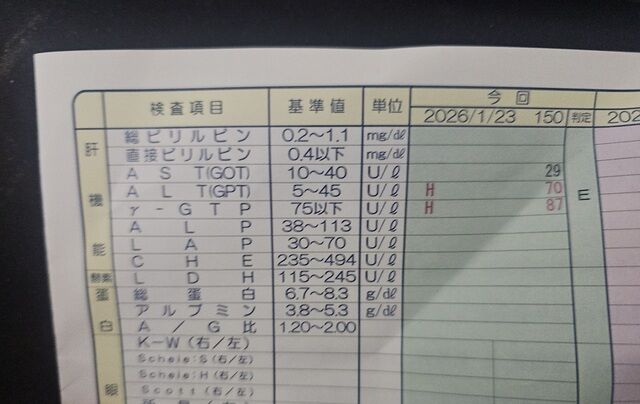 検査項目 基準値 単位 今回
2026/1/23 150 判定 202
肝機能
総ビリルビン 0.2～1.1 mg/dℓ
直接ビリルビン 0.4以下 mg/dℓ
AST(GOT) 10～40 U/ℓ 29
ALT(GPT) 5～45 U/ℓ H 70 E
γ-GTP 75以下 U/ℓ H 87
ALP 38～113 U/ℓ
LAP 30～70 U/ℓ
CHE 235～494 U/ℓ
酵素 LDH 115～245 U/ℓ
蛋白
総蛋白 6.7～8.3 g/dℓ
アルブミン 3.8～5.3 g/dℓ
A/G比 1.20～2.00
眼
K-W(右/左)
Scheie:S(右/左)
Scheie:H(右/左)
Scott(右/左)